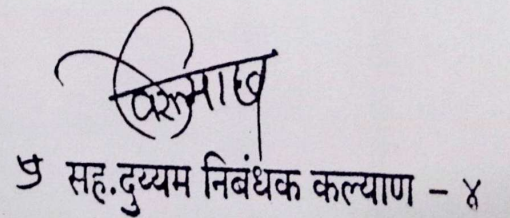 सह.दुय्यम निबंधक कल्याण - ४